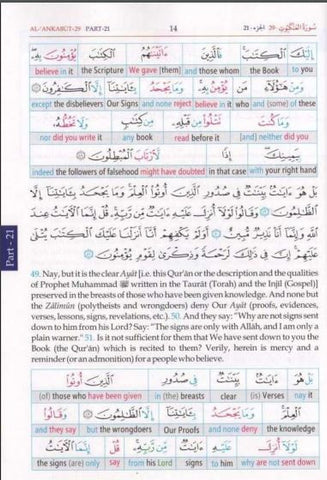 AL-'ANKABÛT-29 PART-21 14 الجزء - ٢١ سُورَةُ العَنْكَبُوت - ٢٩
إِلَيْكَ الْكِتَابَ فَالَّذِينَ ءَاتَيْنَاهُمُ الْكِتَابَ يُؤْمِنُونَ بِهِ
believe in it the Scripture We gave [them] and those whom the Book to you
وَمِنْ هَٰؤُلَاءِ مَن يُؤْمِنُ بِهِ وَمَا يَجْحَدُ بِآيَاتِنَا إِلَّا الْكَافِرُونَ
except the disbelievers Our Signs and none reject believe in it who and (some) of these
وَمَا كُنتَ تَتْلُو مِن قَبْلِهِ مِن كِتَابٍ وَلَا تَخُطُّهُ
nor did you write it any book before it read [and] neither did you
بِيَمِينِكَ إِذًا لَّارْتَابَ الْمُبْطِلُونَ
indeed the followers of falsehood might have doubted in that case with your right hand
بَلْ هُوَ ءَايَاتٌ بَيِّنَاتٌ فِي صُدُورِ الَّذِينَ أُوتُوا الْعِلْمَ وَمَا يَجْحَدُ بِآيَاتِنَا إِلَّا
الظَّالِمُونَ وَقَالُوا لَوْلَا أُنزِلَ عَلَيْهِ ءَايَاتٌ مِّن رَّبِّهِ قُلْ إِنَّمَا الْآيَاتُ عِندَ
اللَّهِ وَإِنَّمَا أَنَا نَذِيرٌ مُّبِينٌ أَوَلَمْ يَكْفِهِمْ أَنَّا أَنزَلْنَا عَلَيْكَ الْكِتَابَ يُتْلَىٰ
عَلَيْهِمْ إِنَّ فِي ذَٰلِكَ لَرَحْمَةً وَذِكْرَىٰ لِقَوْمٍ يُؤْمِنُونَ
Part - 21
49. Nay, but it is the clear Ayât [i.e. this Qur'ân or the description and the qualities
of Prophet Muhammad ﷺ written in the Taurât (Torah) and the Injil (Gospel)]
preserved in the breasts of those who have been given knowledge. And none but
the Zâlimûn (polytheists and wrongdoers) deny Our Ayât (proofs, evidences,
verses, lessons, signs, revelations, etc.). 50. And they say: "Why are not signs sent
down to him from his Lord? Say: "The signs are only with Allâh, and I am only a
plain warner." 51. Is it not sufficient for them that We have sent down to you the
Book (the Qur'ân) which is recited to them? Verily, herein is mercy and a
reminder (or an admonition) for a people who believe.
بَلْ هُوَ ءَايَاتٌ بَيِّنَاتٌ فِي صُدُورِ الَّذِينَ أُوتُوا
(of) those who have been given in (the) breasts clear (is) Verses nay it
الْعِلْمَ وَمَا يَجْحَدُ بِآيَاتِنَا إِلَّا الظَّالِمُونَ وَقَالُوا
and they say but the wrongdoers Our Proofs and none deny the knowledge
لَوْلَا أُنزِلَ عَلَيْهِ ءَايَاتٌ مِّن رَّبِّهِ قُلْ إِنَّمَا الْآيَاتُ
the signs (are) only say from his Lord signs to him why are not sent down